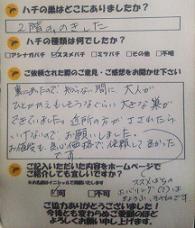 ハチの巣はどこにありましたか？
2階ののきした
ハチの種類は何でしたか？
アシナガバチ スズメバチ ミツバチ その他 不明
ご依頼された際のご意見・ご感想をお聞かせ下さい
裏にあたるので、知らない間に 大人が
大きな巣が
できていました。近所の方が さされたら
いけないので お願いしました。
お値段も 依頼して 良かった
です
ご記入いただいた内容をホームページで
ご紹介しても宜しいですか？
可 不可
ご協力ありがとうございました！
今後とも変わらぬご愛顧のほど
よろしくお願い申し上げます。